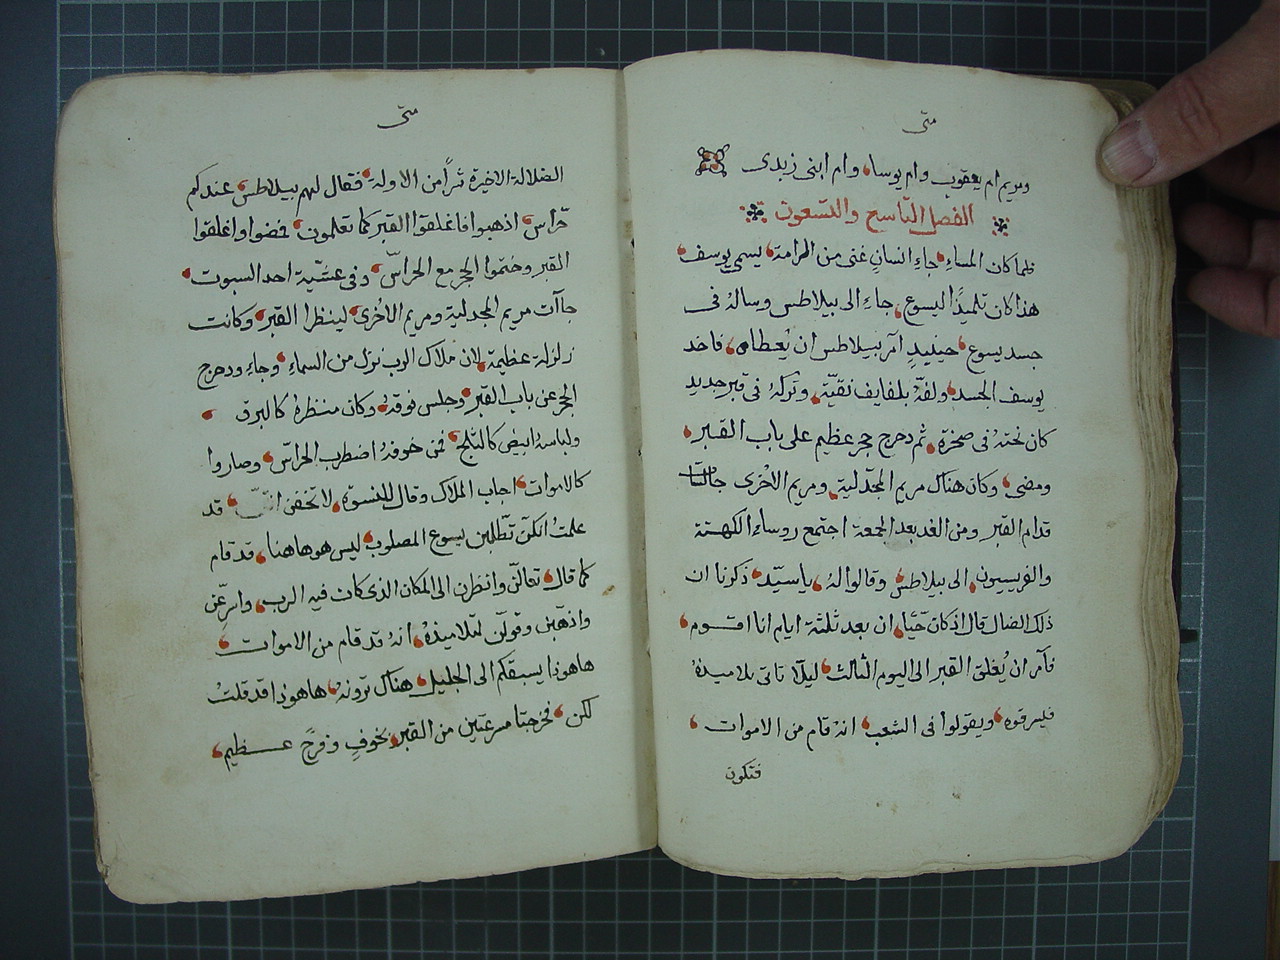 متى
ومريم ام يعقوب وام يوسا، وام ابنى زبدى
الفصل التاسع والتسعون
فلما كان المساء، جاء انسان غنى من الرامة، يسمى يوسف،
هذا كان تلميذًا ليسوع، جاء الى بيلاطس وسالهُ فى
جسد يسوع، حينيدٍ امر بيلاطس ان يُعطاه، فاخد
يوسف الجسد، ولفّهُ بلفايف نقيّة، وتركهُ فى قبر جديد
كان نحتهُ فى صخرة، ثم دحرج حجر عظيم على باب القبر،
ومضى، وكان هناك مريم المجدّلية، ومريم الاخْرى جالستا
قدام القبر ومن الغد بعد الجمعة اجتمع روساء الكهنة
والفريسيون، الى بيلاطس، وقالوا لهُ، ياسيّد، ذكرنا ان
ذلك الضال قال اذ كان حيًّا، ان بعد ثلثة ايام انا اقوم،
فآمر ان يُغلق القبر الى اليوم الثالث، ليلّا تاتى تلاميذهُ
فليسرقوه، ويقولوا فى الشعب، انهُ قام من الاموات،
فتكون
متى
الضلالة الاخيرة شراً من الاولة، فقال لهم بيلاطس، عندكم
حّراس، اذهبوا فاغلقوا القبر كما تعلمون، فمضوا واغلقوا
القبر وختموا الحجر مع الحراسّ، وفى عشيّة احد السبوت،
جاآت مريم المجدلية ومريم الاخُرى، لينظرا القبر، وكانت
زلزلة عظيمة، لان ملاك الرب نزل من السماء، وجاء ودحرج
الحجر عن باب القبر، وجلس فوقهُ، وكان منظرهُ كالبرق،
ولباسهُ ابيض كالثلج، فمن خوفهُ اضطرب الحرّاس، وصاروا
كالاموات، اجاب الملاك وقال للنسوة، لا تخفن انتنّ، قد
علمتُ انكنّ تطلبن يسوع المصلوب، ليس هو هاهنا، قد قام
كما قال، تعالّن وانظرن الى المكان الذى كان فيه الرب، واسرعّن
واذهبن وقولّن لتلاميذهُ، انهُ قد قام من الاموات،
هاهوذا يسبقكم الى الجليل، هناك ترونهُ، هاهوذا قد قلتُ
لكن، فخرجتا مسرعتين من القبر، بخوفٍ وفرحٍ عظيم،